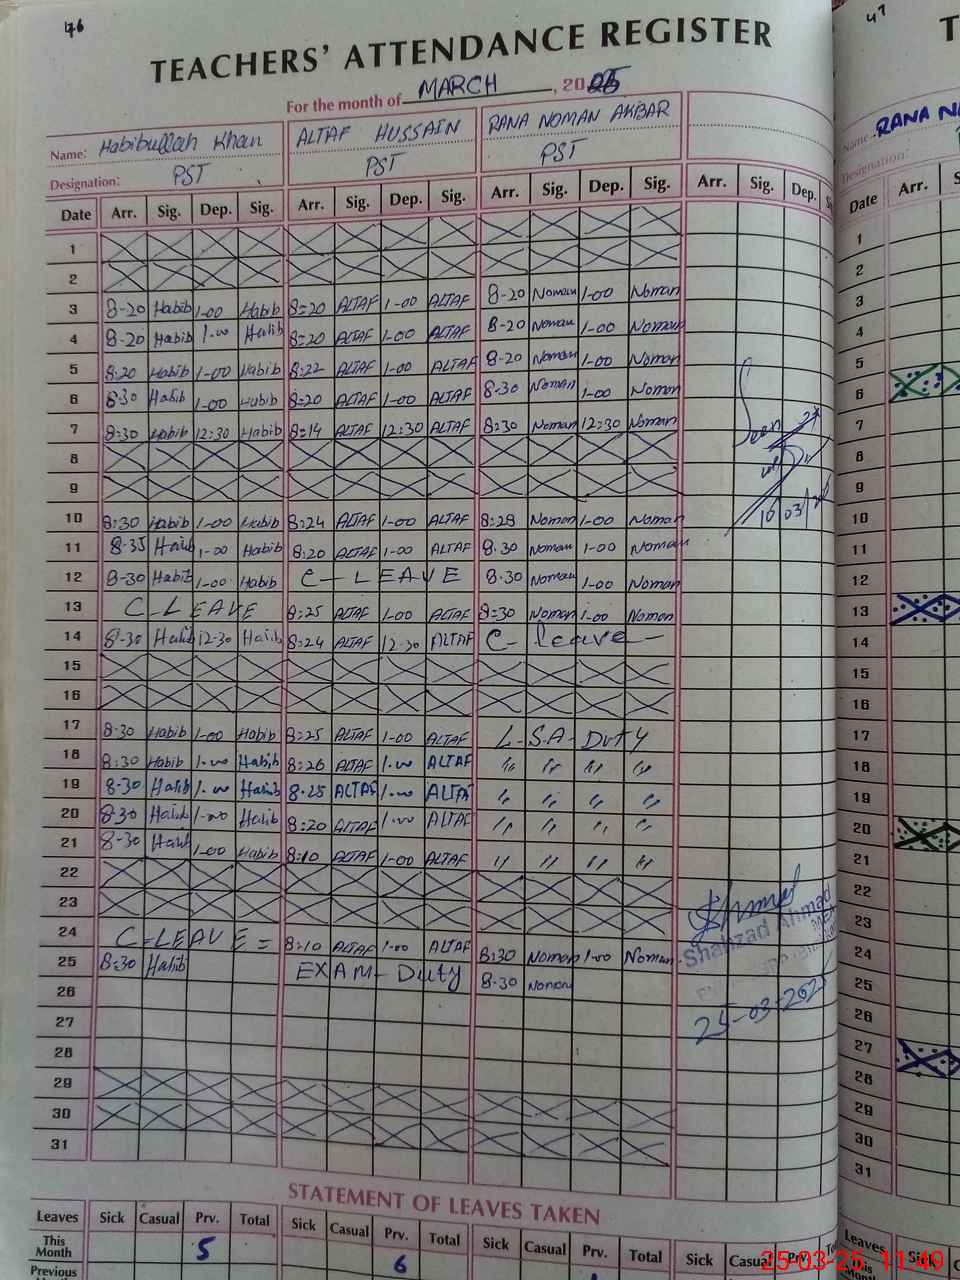 46
47
TEACHERS' ATTENDANCE REGISTER
For the month of MARCH, 2025
Name: Habibullah Khan ALTAF HUSSAIN RANA NOMAN AKBAR
Designation: PST PST PST
Date Arr. Sig. Dep. Sig. Arr. Sig. Dep. Sig. Arr. Sig. Dep. Sig. Arr. Sig. Dep.
1
2
3 8-20 Habib 1-00 Habib 8=20 ALTAF 1-00 ALTAF 8-20 Noman 1-00 Noman
4 8-20 Habib 1-00 Habib 8=20 ALTAF 1-00 ALTAF 8-20 Noman 1-00 Noman
5 8:20 Habib 1-00 Habib 8:22 ALTAF 1-00 ALTAF 8-20 Noman 1-00 Noman
6 8-30 Habib 1-00 Habib 8=20 ALTAF 1-00 ALTAF 8-30 Noman 1-00 Noman
7 8:30 Habib 12:30 Habib 8=14 ALTAF 12:30 ALTAF 8:30 Noman 12:30 Noman
Seen
8
9
10 8:30 Habib 1-00 Habib 8=24 ALTAF 1-00 ALTAF 8=28 Noman 1-00 Noman
11 8-35 Habib 1-00 Habib 8:20 ALTAF 1-00 ALTAF 8.30 Noman 1-00 Noman
12 8-30 Habib 1-00 Habib C-LEAVE 8.30 Noman 1-00 Noman
13 C-LEAVE 8=25 ALTAF 1-00 ALTAF 8=30 Noman 1-00 Noman
14 8-30 Habib 12-30 Habib 8=24 ALTAF 12-30 ALTAF C-leave-
15
16
17 8-30 Habib 1-00 Habib 8=25 ALTAF 1-00 ALTAF L-S.A-Duty
18 8:30 Habib 1-00 Habib 8=26 ALTAF 1-00 ALTAF " " " "
19 8-30 Habib 1-00 Habib 8-25 ALTAF 1-00 ALTAF " " " "
20 8-30 Habib 1-00 Habib 8=20 ALTAF 1-00 ALTAF " " " "
21 8-30 Habib 1-00 Habib 8=10 ALTAF 1-00 ALTAF " " " "
22
23
24 C-LEAVE = 8=10 ALTAF 1-00 ALTAF 8:30 Noman 1-00 Noman
Shahzad Ahmad
25 8:30 Habib EXAM-Duty 8-30 Noman
25-03-2025
26
27
28
29
30
31
STATEMENT OF LEAVES TAKEN
Leaves Sick Casual Prv. Total Sick Casual Prv. Total Sick Casual Prv. Total Sick Casual Prv.
This Month 5 6
Previous
RANA
Name
Designation
Date Arr.
1
2
3
4
5
6
7
8
9
10
11
12
13
14
15
16
17
18
19
20
21
22
23
24
25
26
27
28
29
30
31
Leaves
This
25-03-25 11:49